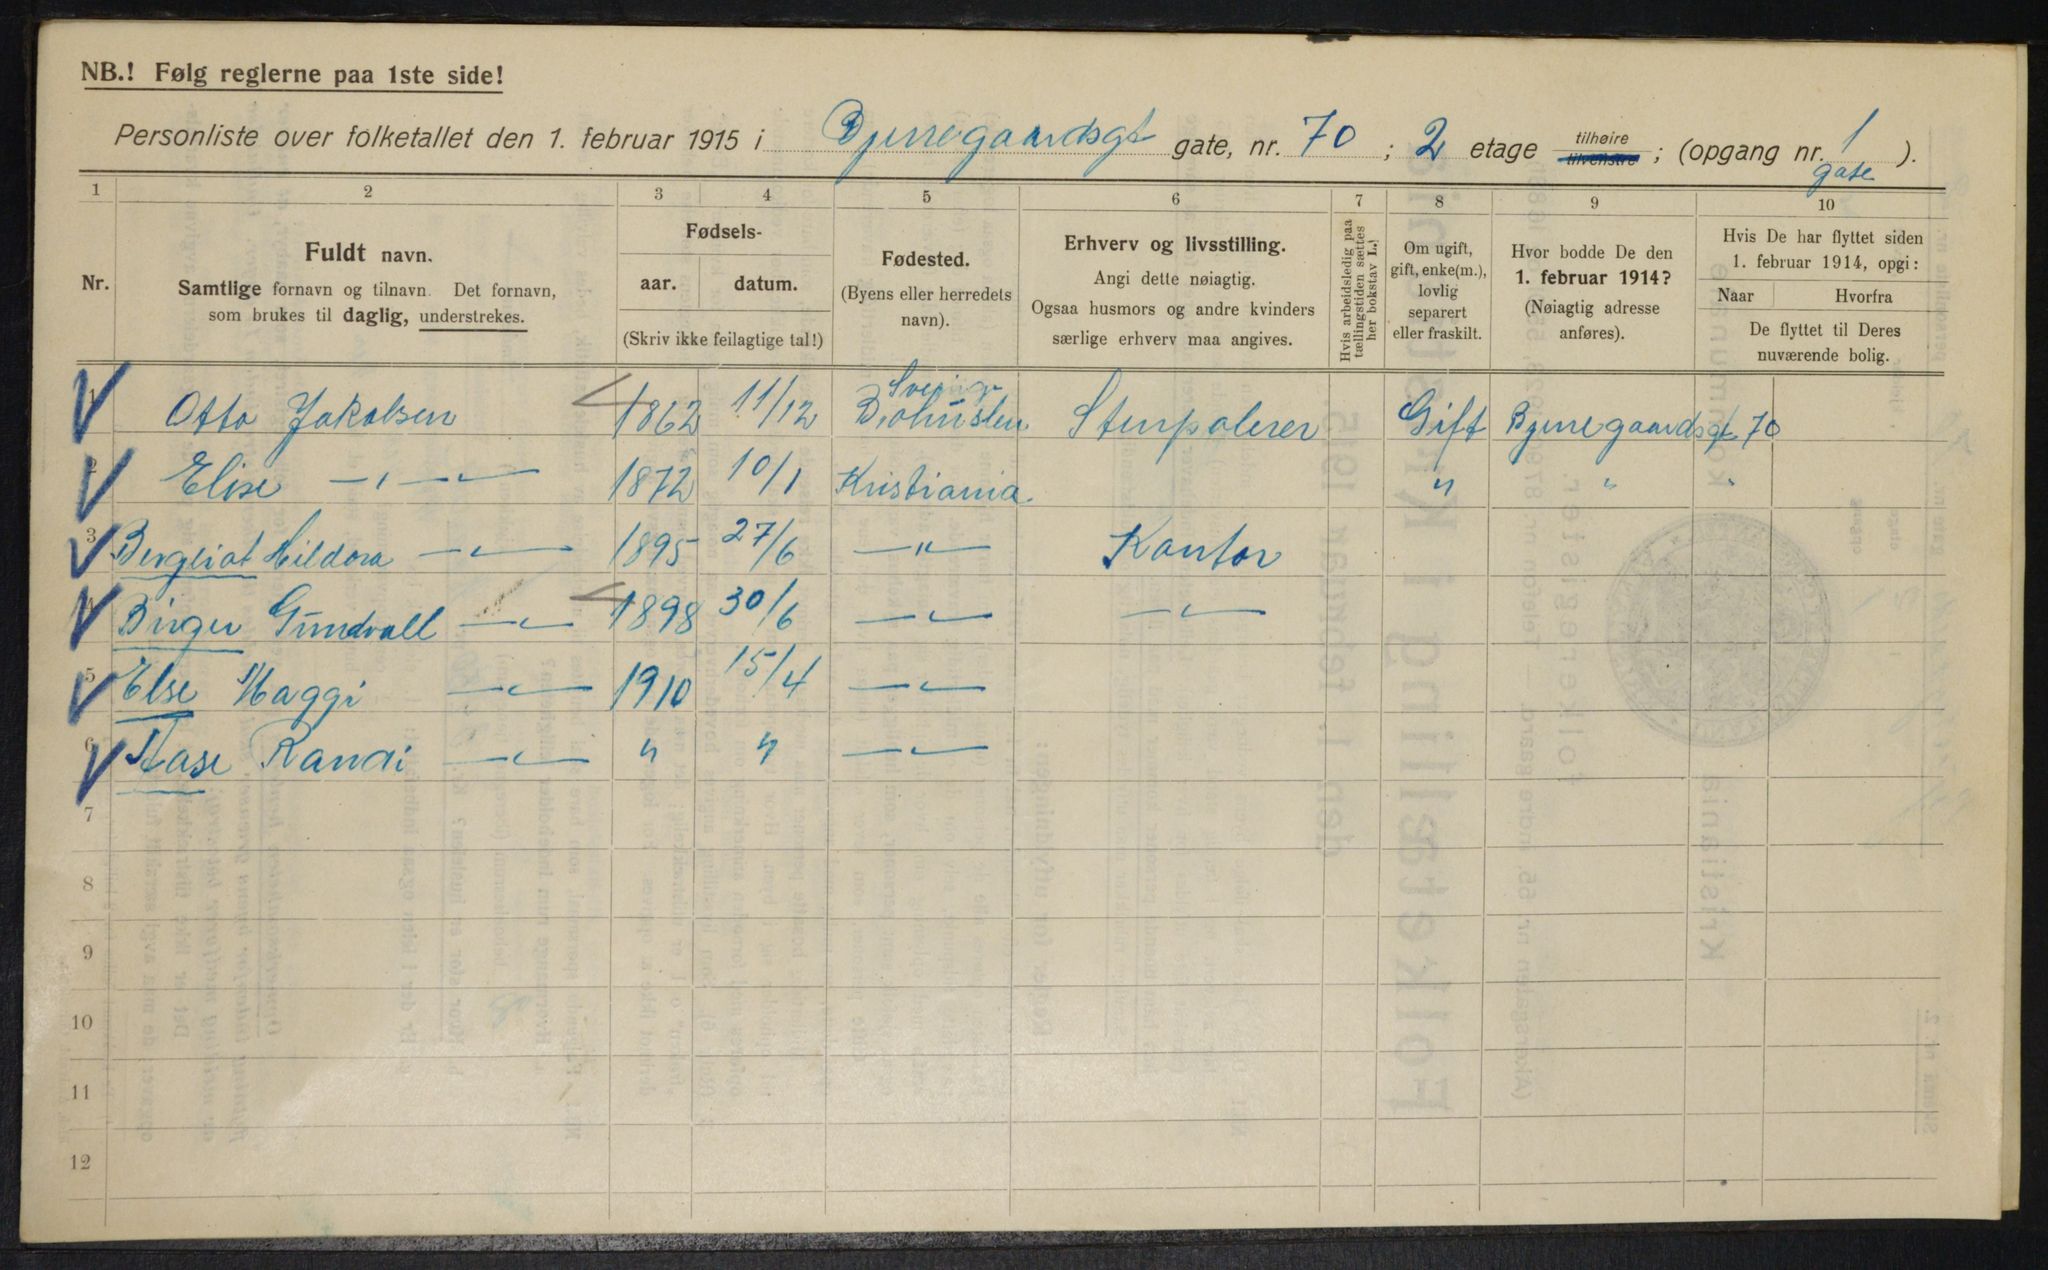 NB.! Følg reglerne paa 1ste side!
Personliste over folketallet den 1. februar 1915 i Bjerregaardsgt gate, nr. 70 ; 2 etage tilhøire tilvenstre ; (opgang nr. 1 gate ).
1 2 3 4 5 6 7 8 9 10
Nr.
Fuldt navn.
Samtlige fornavn og tilnavn. Det fornavn,
som brukes til daglig, understrekes.
Fødsels-
aar. datum.
(Skriv ikke feilagtige tal!)
Fødested.
(Byens eller herredets
navn).
Erhverv og livsstilling.
Angi dette nøiagtig.
Ogsaa husmors og andre kvinders
særlige erhverv maa angives.
Hvis arbeidsledig paa
tællingstiden sættes
her bokstav L.!
Om ugift,
gift, enke(m.),
lovlig
separert
eller fraskilt.
Hvor bodde De den
1. februar 1914?
(Nøiagtig adresse
anføres).
Hvis De har flyttet siden
1. februar 1914, opgi:
Naar Hvorfra
De flyttet til Deres
nuværende bolig.
1 Otto Jakobsen 1862 11/12 Sverige Bohuslen Stenpolerer Gift Bjerregaardsgt 70
2 Elise —„— 1872 10/1 Kristiania „ „ „
3 Bergliot Hildora —„— 1895 27/6 —„— Kontor
4 Birger Gundvall —„— 1898 30/6 —„— —„—
5 Else Maggi —„— 1910 15/4 —„—
6 Aase Randi —„— „ „ —„—
7
8
9
10
11
12